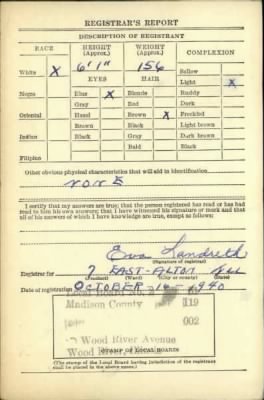 REGISTRAR'S REPORT
DESCRIPTION OF REGISTRANT
RACE HEIGHT (Approx.) WEIGHT (Approx.) COMPLEXION
6'1" 156 Sallow
White X EYES HAIR Light X
Negro Blue X Blonde Ruddy
Gray Red Dark
Oriental Hazel Brown X Freckled
Brown Black Light brown
Indian Black Gray Dark brown
Bald Black
Filipino
Other obvious physical characteristics that will aid in identification
NONE
I certify that my answers are true; that the person registered has read or has had
read to him his own answers; that I have witnessed his signature or mark and that
all of his answers of which I have knowledge are true, except as follows:
Eva Landreth
(Signature of registrar)
Registrar for 7 EAST-ALTON ILL
(Precinct) (Ward) (City or county) (State)
Date of registration OCTOBER 16-1940
Local Board No. 2
Madison County 119
002
Wood River Avenue
Wood River,
STAMP OF LOCAL BOARD
(The stamp of the Local Board having jurisdiction of the registrant
shall be placed in the above space.)